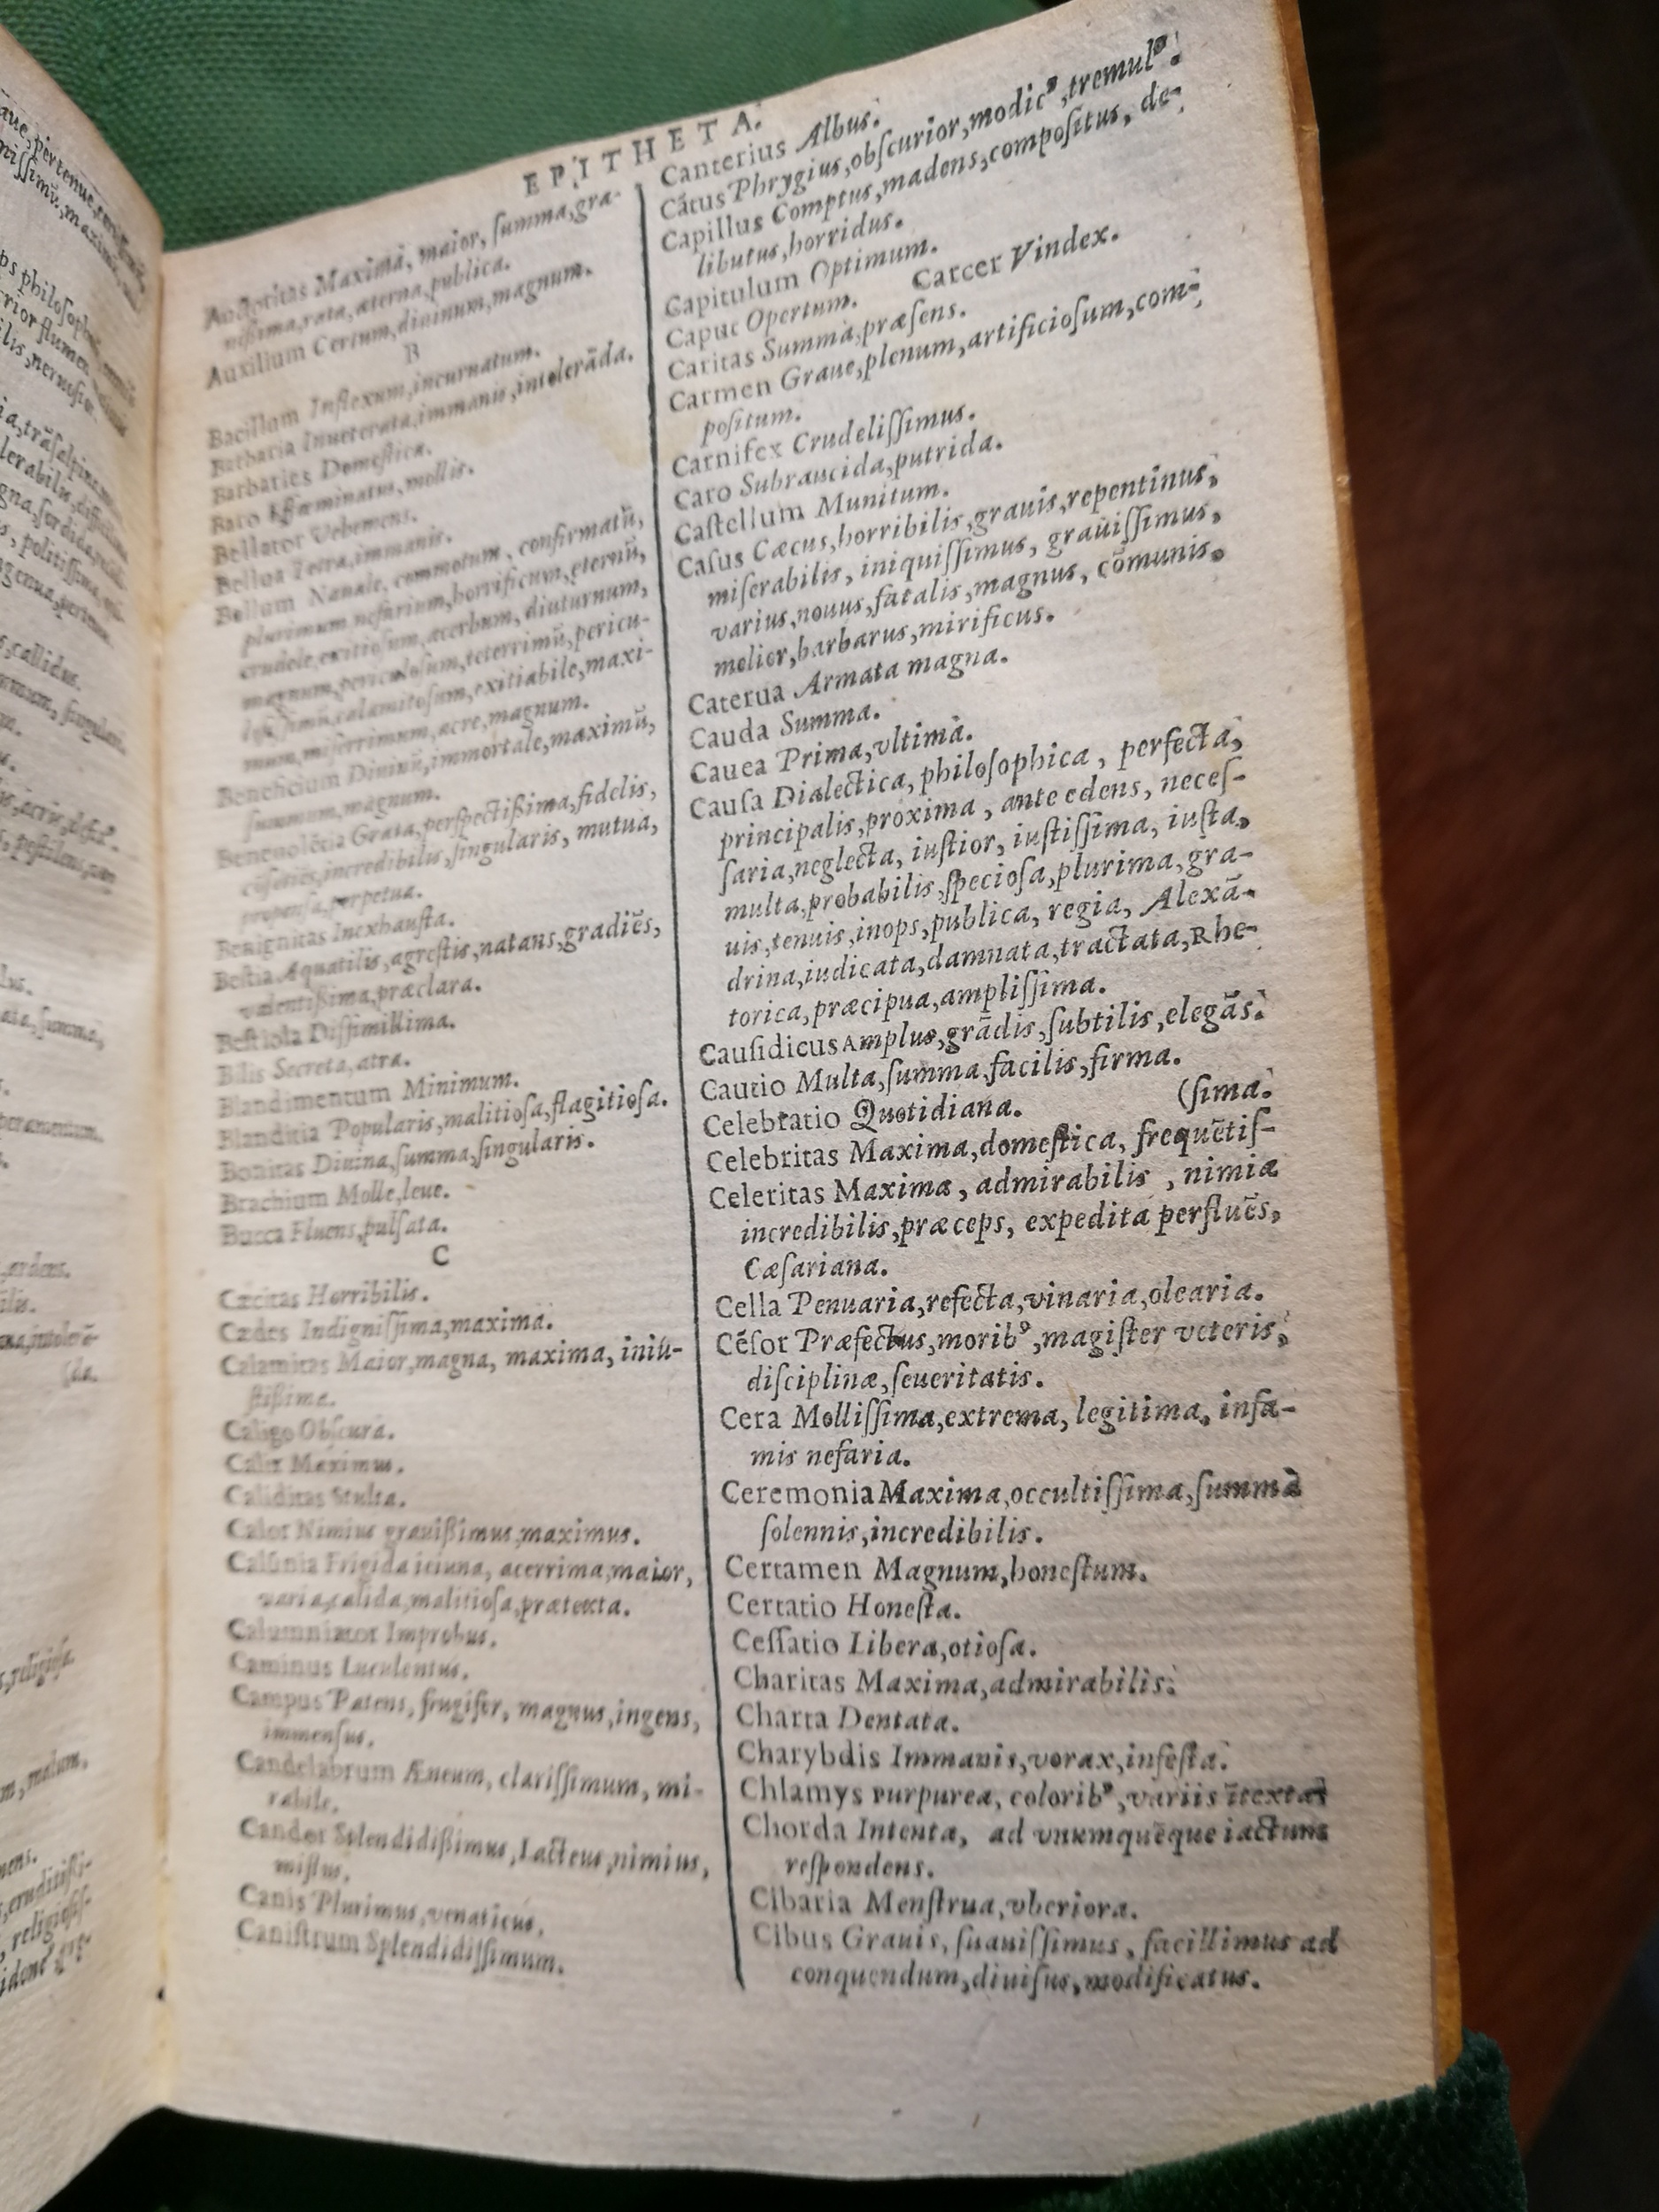 EPITHETA.
Auctoritas Maxima, maior, ſumma, gra-
uiſſima, rata, æterna, publica.
Auxilium Certum, diuinum, magnum.
B
Bacillum Inflexum, incuruatum.
Barbaria Inueterata, immanis, intolerāda.
Barbaries Domeſtica.
Baro Effœminatus, mollis.
Bellator Vehemens.
Bellua Tetra, immanis.
Bellum Nauale, commotum, confirmatū,
plurimum nefarium, horrificum, eternū,
crudele, exitioſum, acerbum, diuturnum,
magnum, periculoſum, teterrimū, pericu-
loſiſſimū, calamitoſum, exitiabile, maxi-
mum, miſerrimum, acre, magnum.
Beneficium Diuinū, immortale, maximū,
ſummum, magnum.
Beneuolētia Grata, perſpectißima, fidelis,
incredibilis, ſingularis, mutua,
propenſa, perpetua.
Benignitas Inexhauſta.
Beſtia Aquatilis, agreſtis, natans, gradiēs,
valentißima, præclara.
Beſtiola Diſſimillima.
Bilis Secreta, atra.
Blandimentum Minimum.
Blanditia Popularis, malitioſa, flagitioſa.
Bonitas Diuina, ſumma, ſingularis.
Brachium Molle, leue.
Bucca Fluens, pulſata.
C
Cæcitas Horribilis.
Cædes Indigniſſima, maxima.
Calamitas Maior, magna, maxima, iniu-
ſtißima.
Caligo Obſcura.
Calix Maximus.
Caliditas Stulta.
Calor Nimius grauißimus, maximus.
Calūnia Frigida ieiuna, acerrima, maior,
varia, calida, malitioſa, prætexta.
Calumniator Improbus.
Caminus Luculentus.
Campus Patens, frugifer, magnus, ingens,
immenſus.
Candelabrum Æneum, clariſſimum, mi-
rabile.
Candor Splendidißimus, Lacteus, nimius,
miſtus.
Canis Plurimus, venaticus.
Caniſtrum Splendidiſſimum.
Canterius Albus.
Cātus Phrygius, obſcurior, modicꝰ, tremulꝰ.
Capillus Comptus, madens, compoſitus, de-
libutus, horridus.
Capitulum Optimum.
Caput Opertum. Carcer Vindex.
Caritas Summa, præſens.
Carmen Graue, plenum, artificioſum, com-
poſitum.
Carnifex Crudeliſſimus.
Caro Subraucida, putrida.
Caſtellum Munitum.
Caſus Cæcus, horribilis, grauis, repentinus,
miſerabilis, iniquiſſimus, grauiſſimus,
varius, nouus, fatalis, magnus, cōmunis,
melior, barbarus, mirificus.
Caterua Armata magna.
Cauda Summa.
Cauea Prima, vltima.
Cauſa Dialectica, philoſophica, perfecta,
principalis, proxima, ante edens, neceſ-
ſaria, neglecta, iuſtior, iuſtiſſima, iuſta,
multa, probabilis, ſpecioſa, plurima, gra-
uis, tenuis, inops, publica, regia, Alexā-
drina, iudicata, damnata, tractata, Rhe-
torica, præcipua, ampliſſima.
Cauſidicus Amplus, grādis, ſubtilis, elegās.
Cautio Multa, ſumma, facilis, firma.
Celebratio Quotidiana. (ſima.
Celebritas Maxima, domeſtica, frequētiſ-
Celeritas Maxima, admirabilis, nimia
incredibilis, præceps, expedita perfluēs,
Cæſariana.
Cella Penuaria, refecta, vinaria, olearia.
Cēſor Præfectus, moribꝰ, magiſter veteris,
diſciplinæ, ſeueritatis.
Cera Molliſſima, extrema, legitima, infa-
mis nefaria.
Ceremonia Maxima, occultiſſima, ſumma
ſolennis, incredibilis.
Certamen Magnum, honeſtum.
Certatio Honeſta.
Ceſſatio Libera, otioſa.
Charitas Maxima, admirabilis.
Charta Dentata.
Charybdis Immanis, vorax, infeſta.
Chlamys Purpurea, coloribꝰ, variis ītexta
Chorda Intenta, ad vnumquēque iactum
reſpondens.
Cibaria Menſtrua, vberiora.
Cibus Grauis, ſuauiſſimus, facillimus ad
conquendum, diuiſus, modificatus.